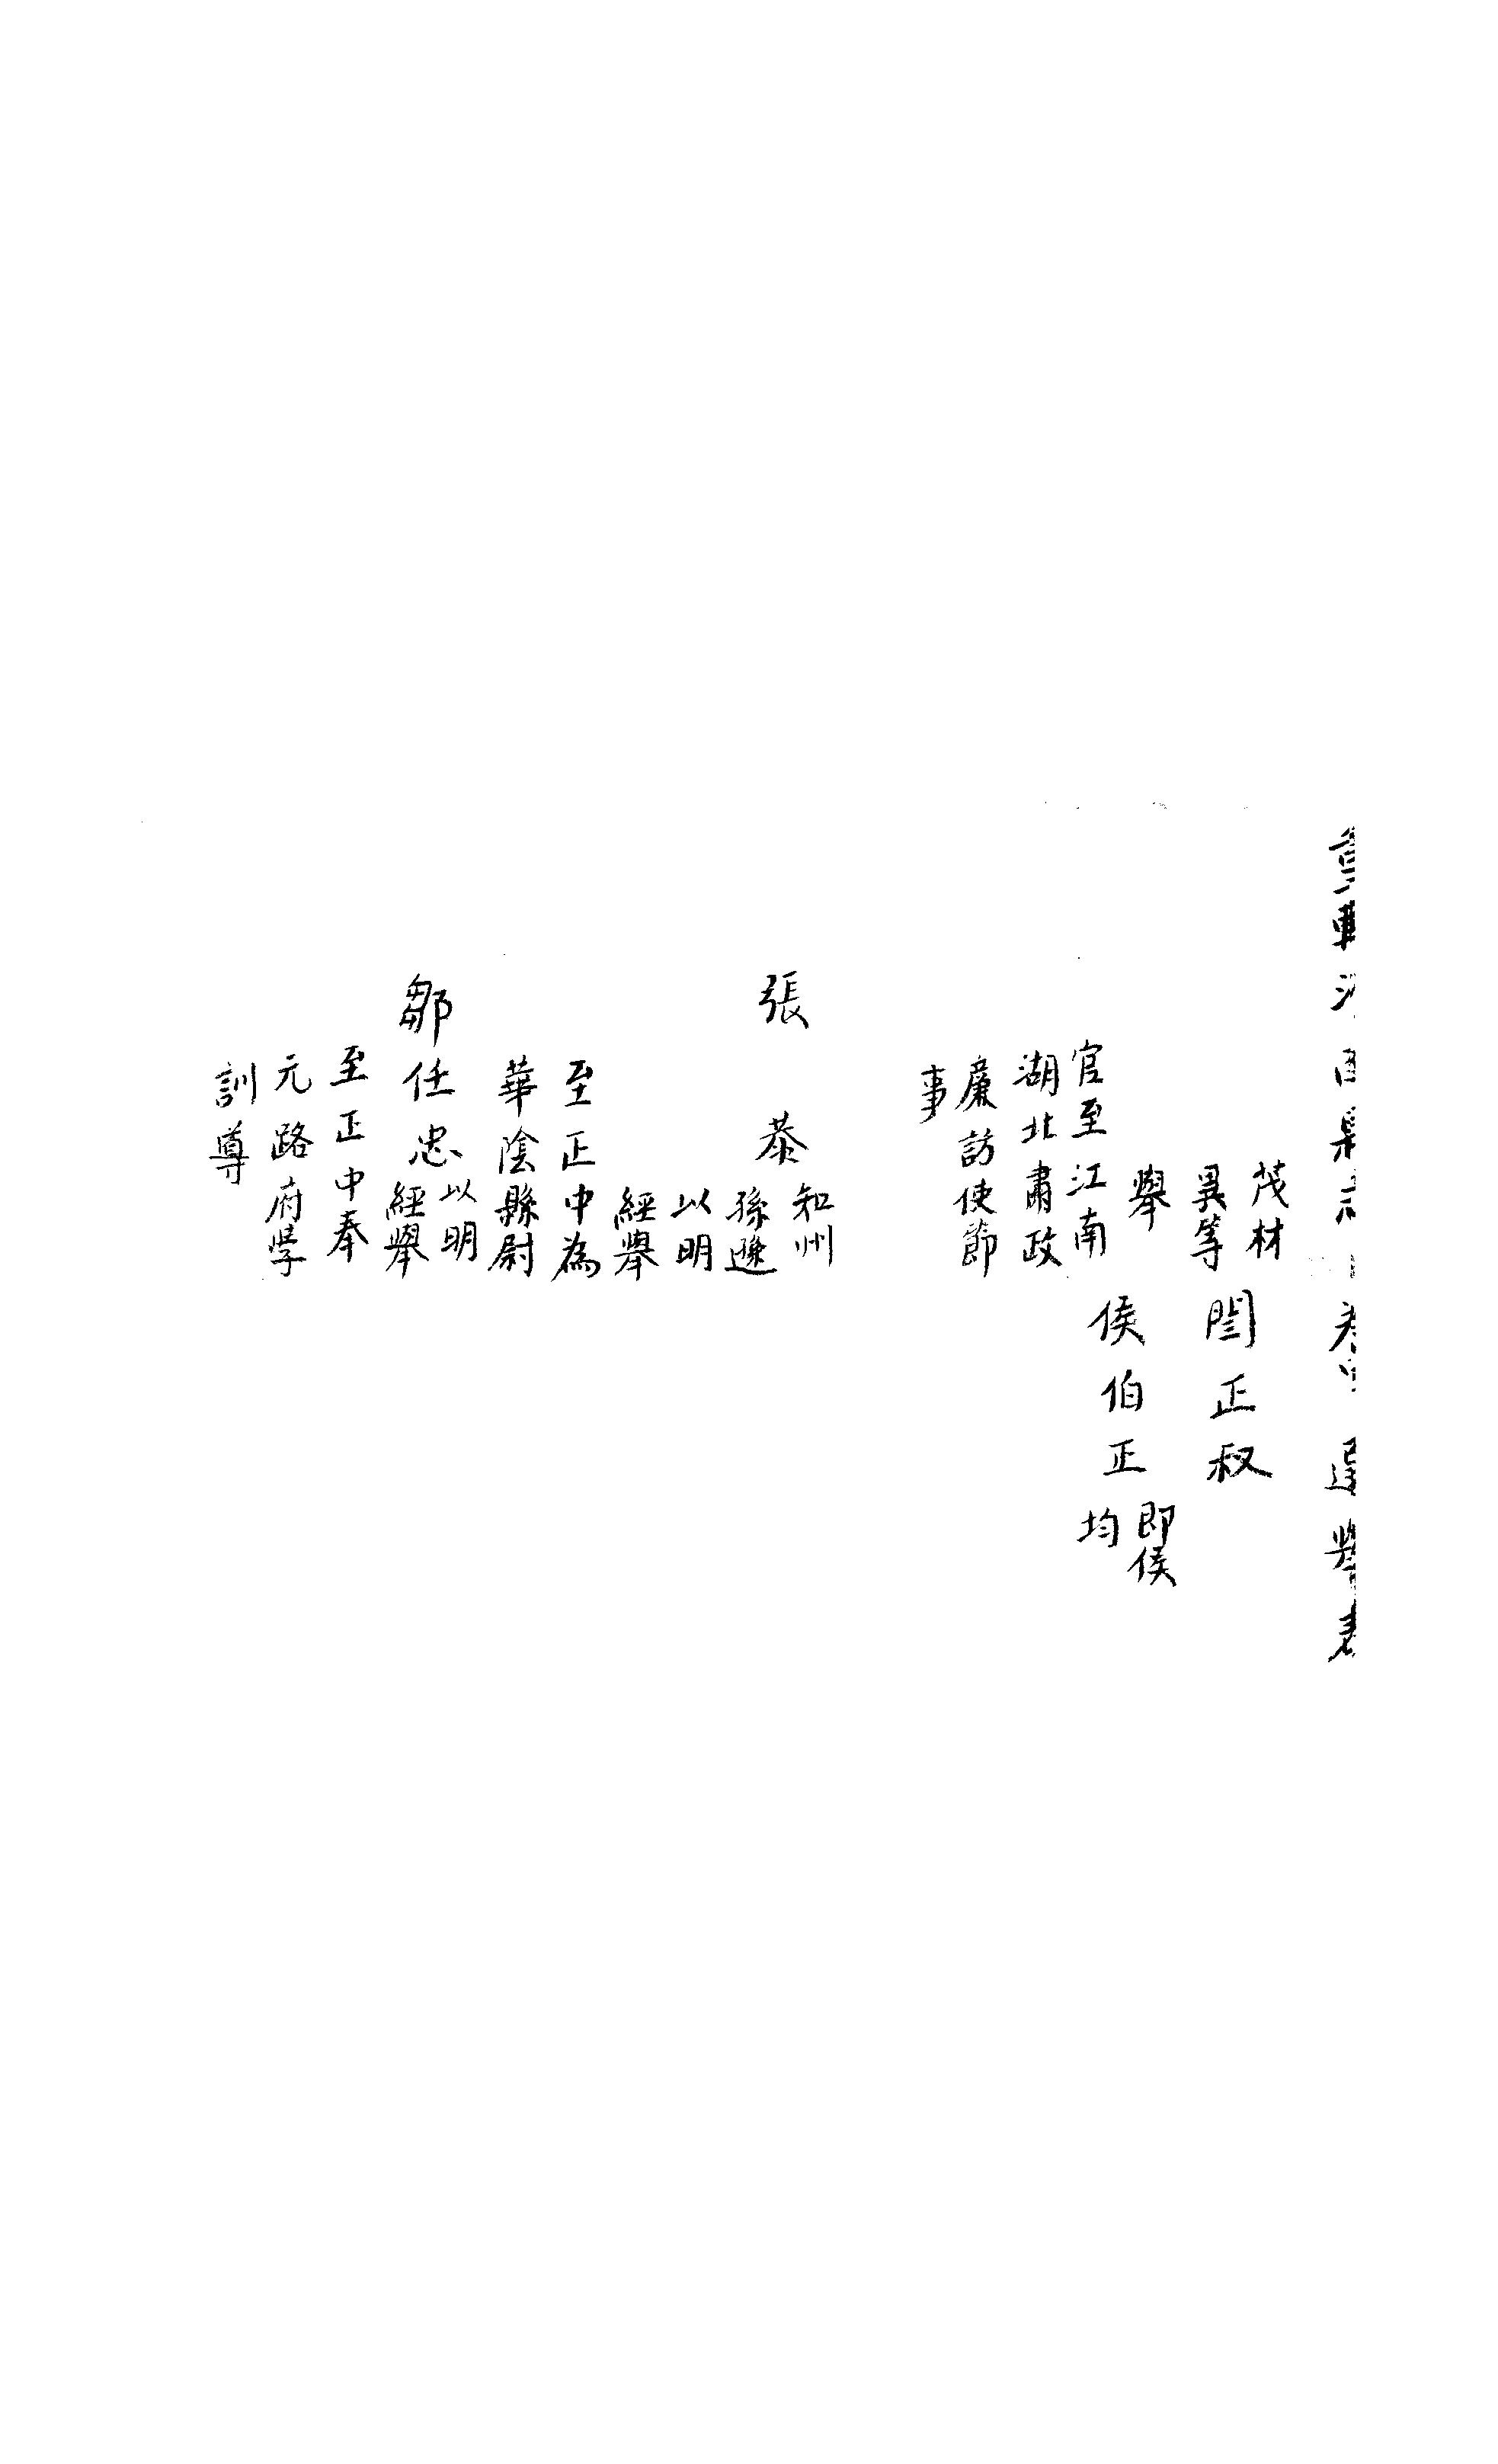 選舉表
茂材
異等
閻正叔
舉
侯伯正
即侯
均
官至江南
湖北肅政
廉訪使節
事
張恭
知州
孫遜
以明
經舉
至正中為
華陰縣尉
鄒任忠
以明
經舉
至正中奉
元路府学
訓導